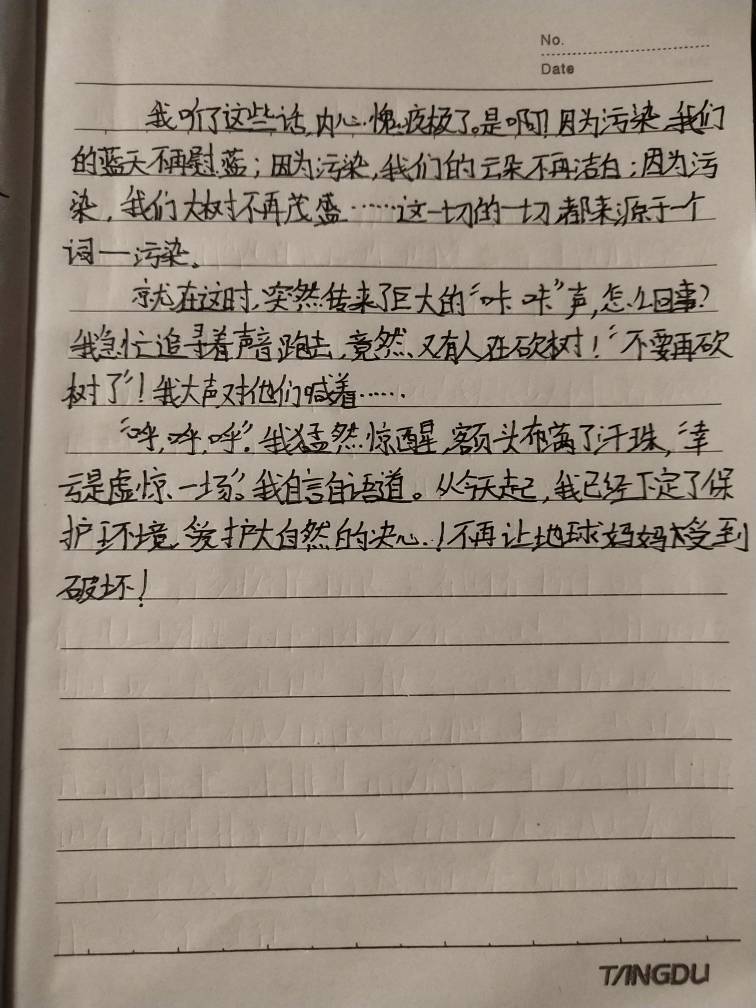 No.
Date
我听了这些话,内心愧疚极了。是啊!因为污染,我们
的蓝天不再蔚蓝;因为污染,我们的云朵不再洁白;因为污
染,我们大树不再茂盛……这一切的一切,都来源于一个
词一污染。
就在这时,突然传来了巨大的“咔咔”声,怎么回事?
我急忙追寻着声音跑去,竟然、又有人在砍树!“不要再砍
树了”!我大声对他们喊着……
“呼,呼,呼”.我猛然惊醒,额头布满了汗珠,“幸
亏是虚惊一场”。我自言自语道。从今天起,我已经下定了保
护环境、爱护大自然的决心.!不再让地球妈妈受到
破坏!
TANGDU